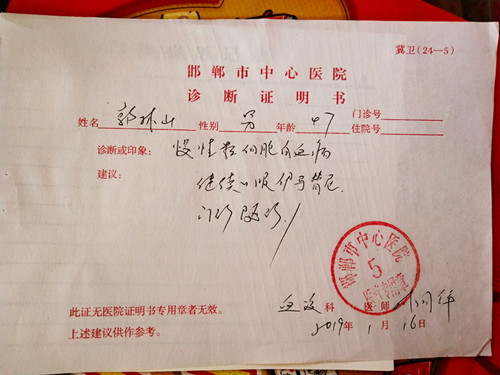 冀卫(24—5)
邯郸市中心医院
诊断证明书
姓名 郭林山 性别 男 年龄 47 门诊号
住院号
诊断或印象: 慢性粒细胞白血病
建议: 继续口服伊马替尼
门诊随诊
邯郸市中心医院
5
此证无医院证明书专用章者无效。
上述建议供作参考。
血液 科 医师
2019年 1月 16日